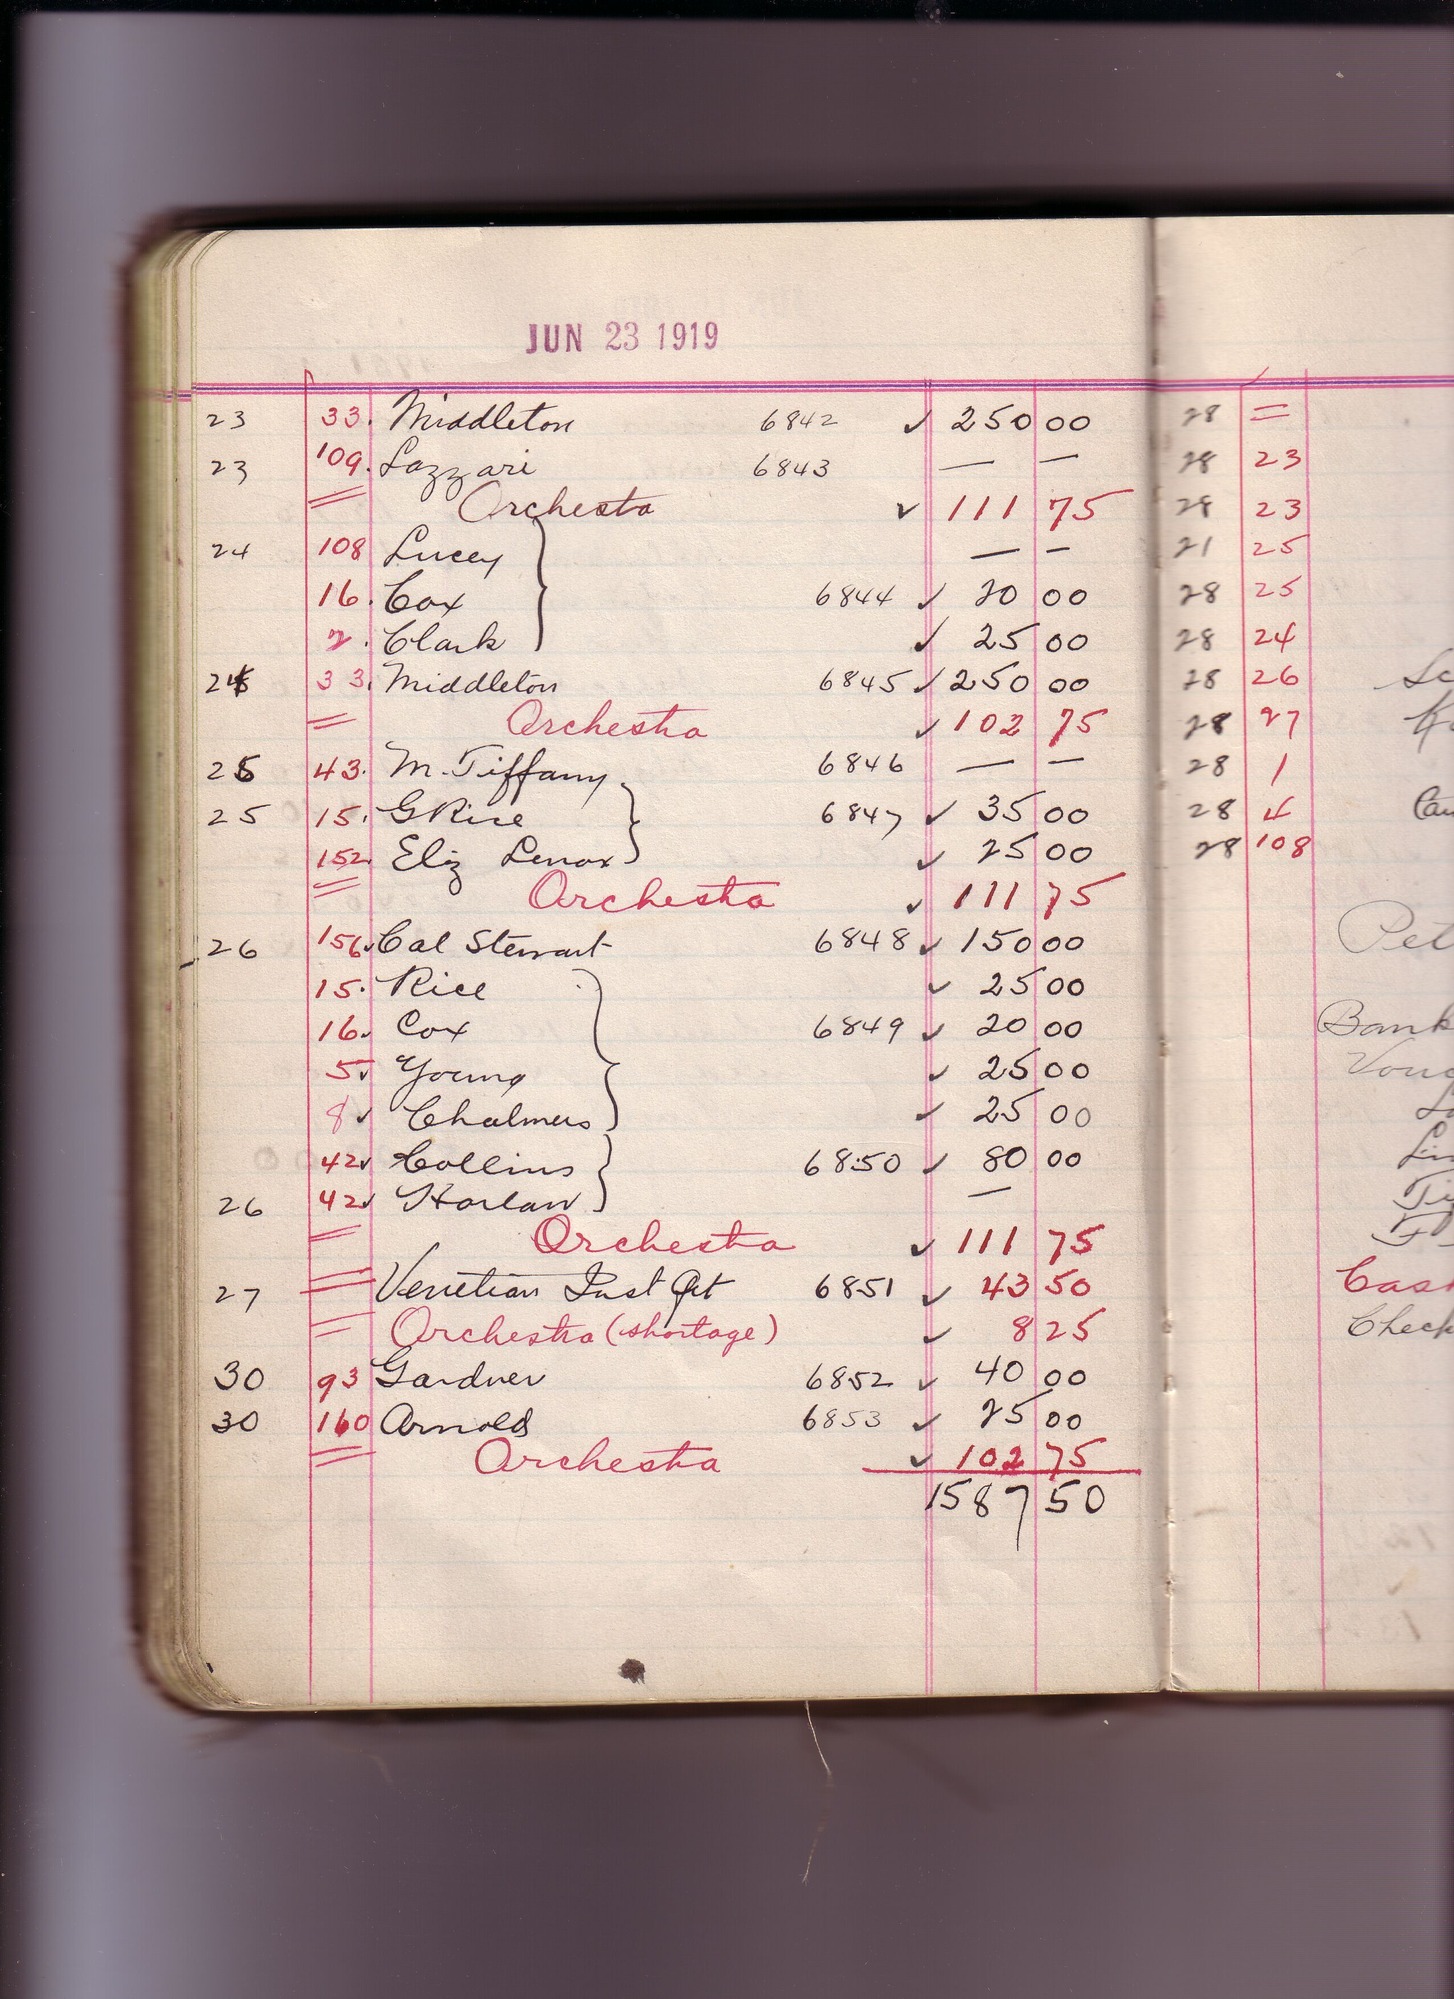 JUN 23 1919
23 33. Middleton 6842 ✓ 250 00
23 109. Lazzari 6843 — —
= Orchesta ✓ 111 75
24 108 Lucey — —
16. Cox 6844 ✓ 20 00
2. Clark ✓ 25 00
33. Middleton 6845 ✓ 250 00
= Orchesta ✓ 102 75
43. M. Tiffany 6846 — —
25 15. G Rice 6847 ✓ 35 00
152 Eliz Lenox ✓ 25 00
= Orchesta ✓ 111 75
26 156 Cal Stewart 6848 ✓ 150 00
15. Rice ✓ 25 00
16. Cox 6849 ✓ 20 00
5 Young ✓ 25 00
8 ✓ Chalmers ✓ 25 00
42 ✓ Collins 6850 ✓ 80 00
26 42 ✓ Harlan —
= Orchesta ✓ 111 75
27 = Venetian Inst Qt 6851 ✓ 43 50
= Orchestra (shortage) ✓ 8 25
30 93 Gardner 6852 ✓ 40 00
30 160 Arnold 6853 ✓ 25 00
= Orchestra ✓ 102 75
1587 50
28 =
28 23
28 23
21 25
28 25
28 24
28 26 Sc
28 27
28 1
28 4 Cau
28 108
Pet
Bank
Vouc
Cash
Check